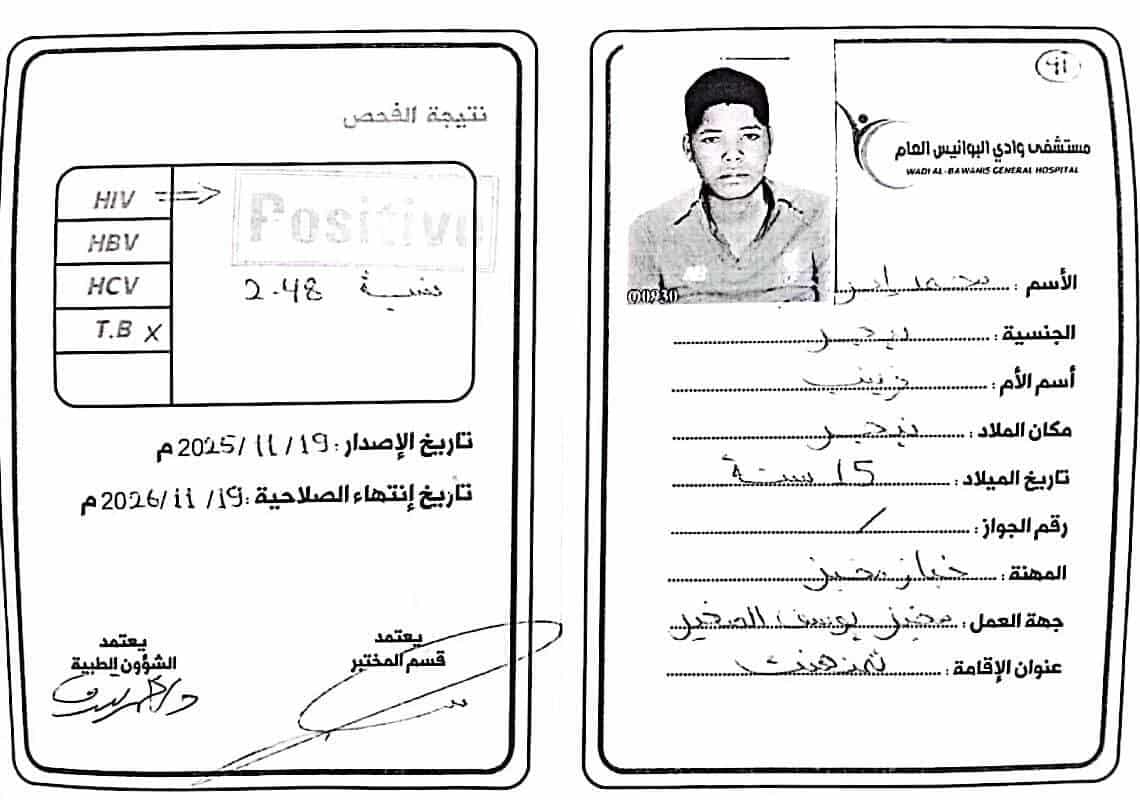 نتيجة الفحص
HIV
Positive
HBV
HCV
نسبة 2.48
T.B X
تاريخ الإصدار : 19 / 11 / 2025 م
تاريخ إنتهاء الصلاحية : 19 / 11 / 2026 م
يعتمد
قسم المختبر
يعتمد
الشؤون الطبية
مستشفى وادي البوانيس العام
WADI AL-BAWANIS GENERAL HOSPITAL
00930
الأسم : محمد
الجنسية : نيجر
أسم الأم : زينب
مكان الملاد : نيجر
تاريخ الميلاد : 15 سنة
رقم الجواز : /
المهنة : خباز مخبز
جهة العمل : مخبز يوسف الصغير
عنوان الإقامة : تمنهنت